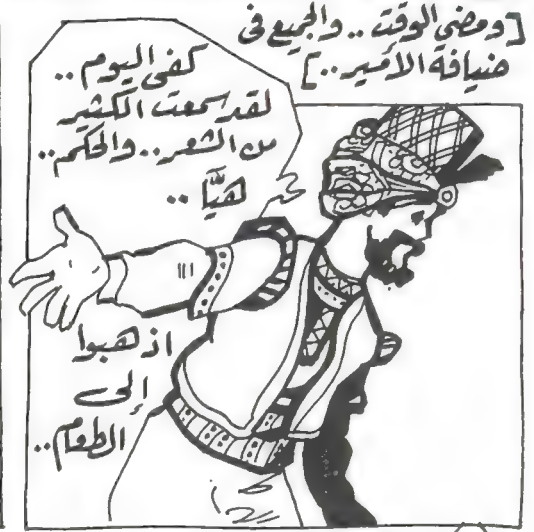 [ومضى الوقت .. والجميع فى
ضيافة الأمير ..]
كفى اليوم ..
لقد سمعت الكثير
من الشعر .. والحكم ..
هيَّا ..
اذهبوا
إلى
الطعام ..